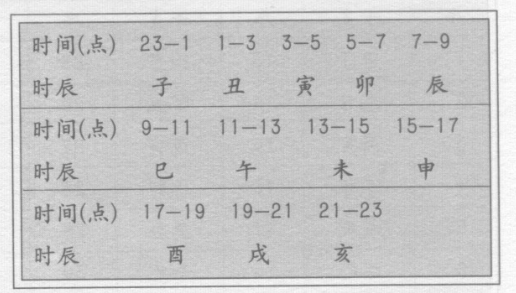 时间(点) 23—1 1—3 3—5 5—7 7—9
时辰 子 丑 寅 卯 辰
时间(点) 9—11 11—13 13—15 15—17
时辰 巳 午 未 申
时间(点) 17—19 19—21 21—23
时辰 酉 戌 亥